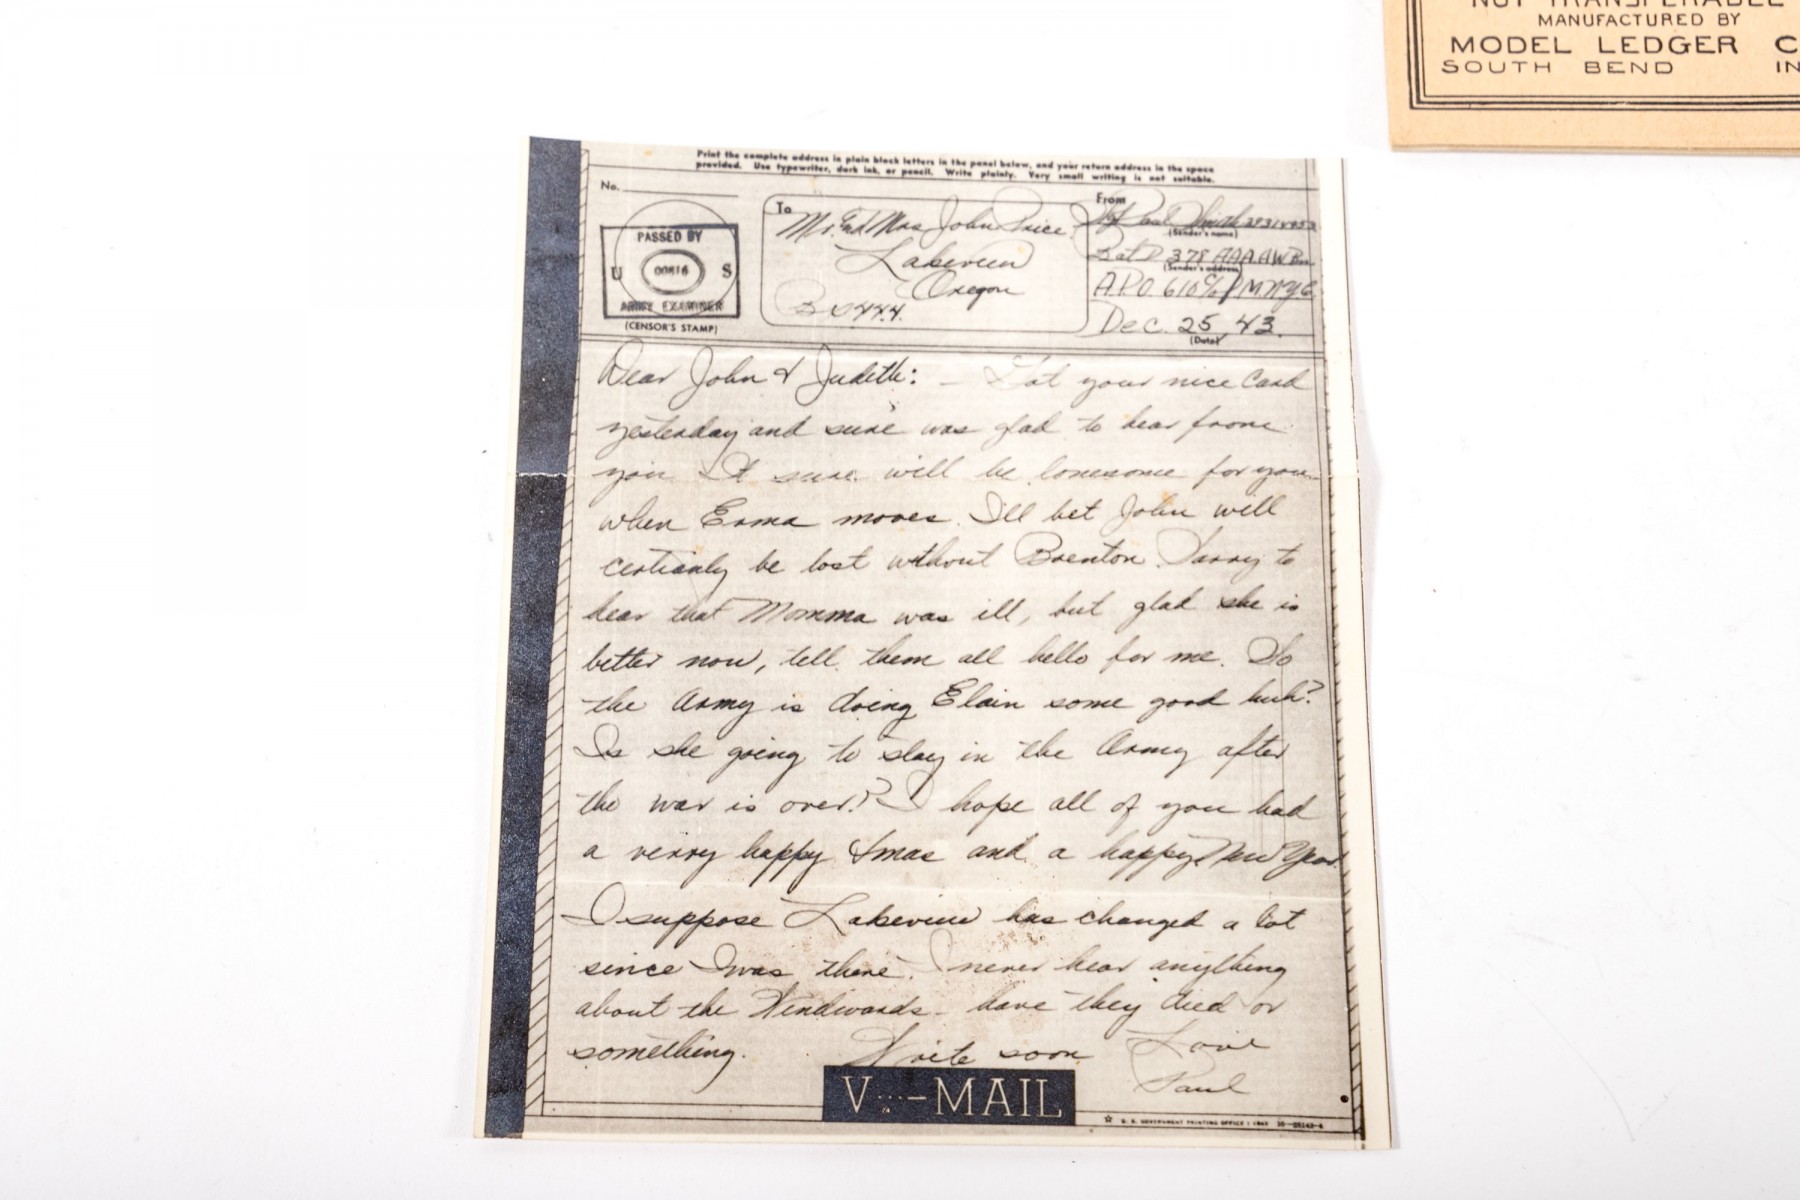 NOT TRANSFERABLE
MANUFACTURED BY
MODEL LEDGER C
SOUTH BEND IN
Print the complete address in plain block letters in the panel below, and your return address in the space
provided. Use typewriter, dark ink, or pencil. Write plainly. Very small writing is not suitable.
No.
PASSED BY
U 00816 S
ARMY EXAMINER
(CENSOR'S STAMP)
To
Mr. And Mrs John Price
Lakeview
Oregon
Box 444.
From
Sgt Paul Smith
(Sender's name)
Bat D 378 AAA AW Bn.
(Sender's address)
A.P.O. 610 % P.M. N.Y.C.
Dec. 25, 43.
(Date)
Dear John & Judith: – Got your nice Card
yesterday and sure was glad to hear from
you. It sure will be lonesome for you
when Erma moves. I'll bet John will
certianly be lost without Brenton. Sorry to
hear that Momma was ill, but glad she is
better now, tell them all hello for me. So
the Army is doing Elain some good huh?
Is she going to stay in the Army after
the war is over? I hope all of you had
a verry happy Xmas and a happy New Year.
I suppose Lakeview has changed a lot
since I was there. I never hear anything
about the Windwards – have they died or
something. Write soon Love
Paul
V...–MAIL
U. S. GOVERNMENT PRINTING OFFICE : 1943 16—28143-4